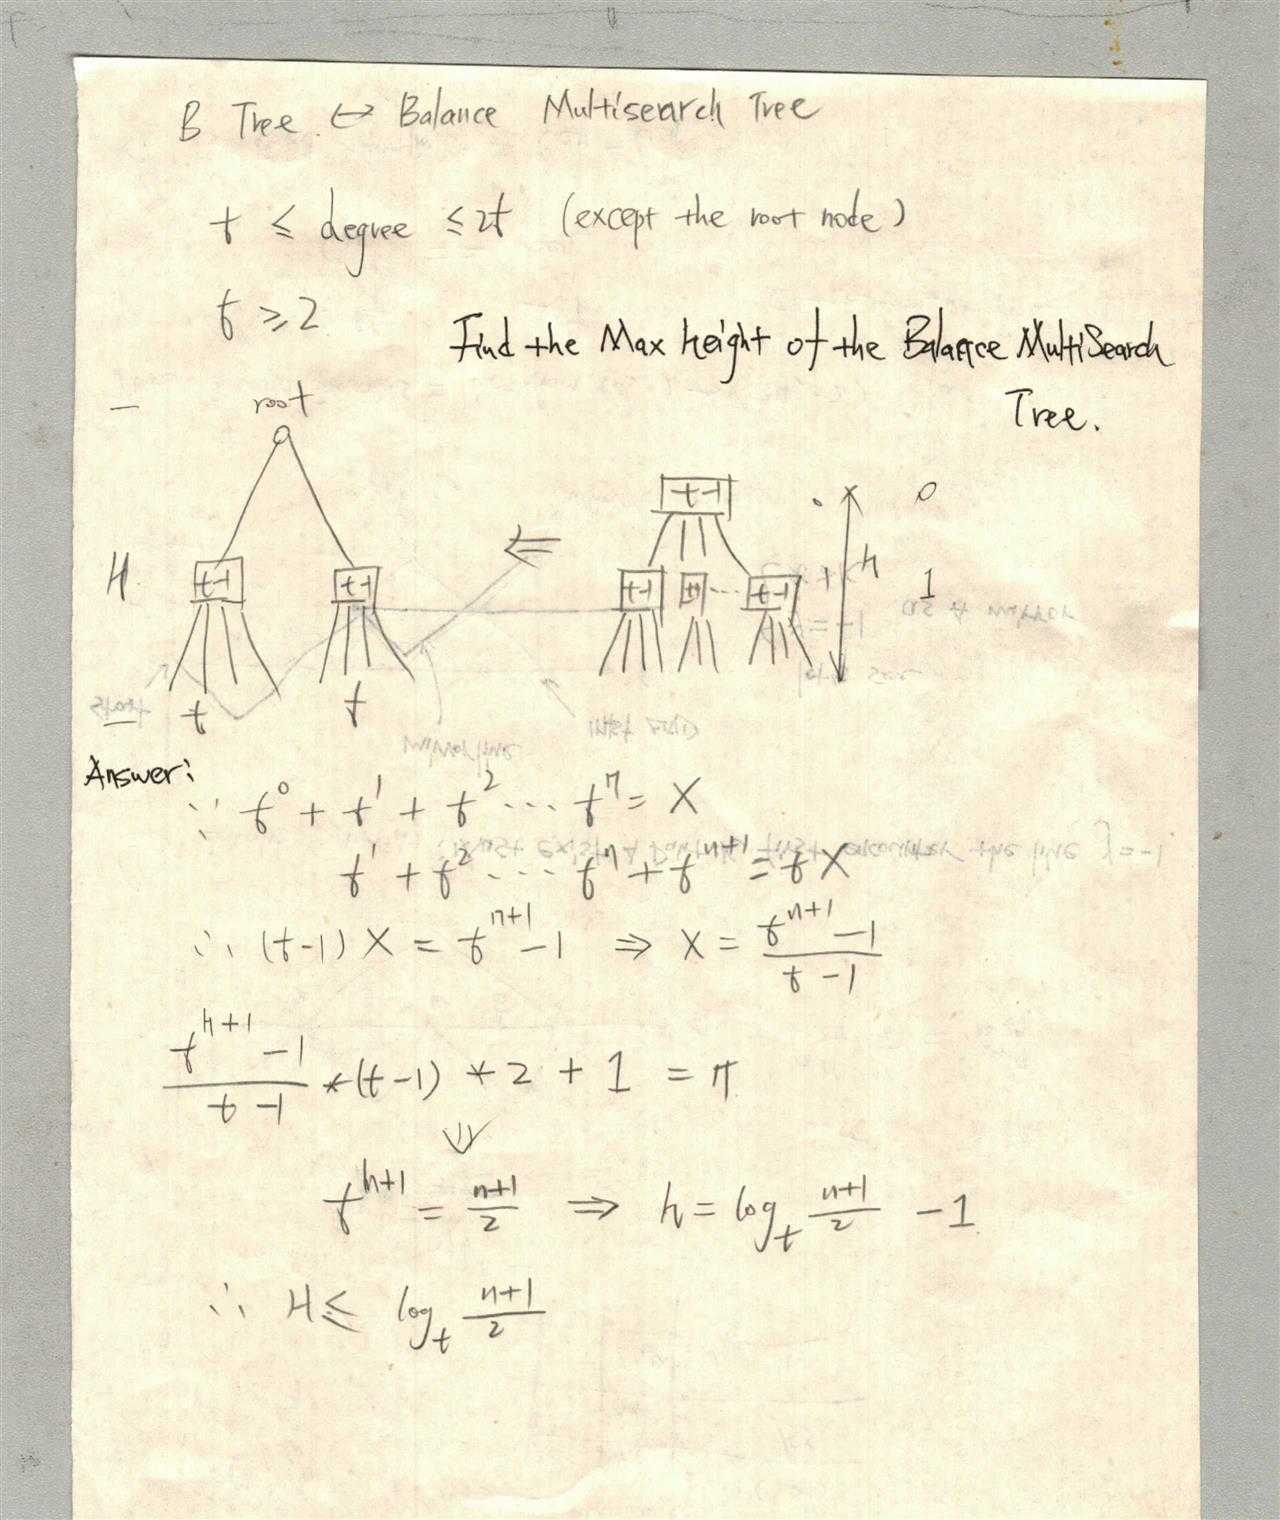 B Tree ↔ Balance Multisearch Tree
t ≤ degree ≤ 2t (except the root node)
t ≥ 2
Find the Max height of the Balance MultiSearch
Tree.
root
t-1
0
H
t-1 t-1
⇐
t-1 ... t-1
h
1
t t
Answer:
∵ t^0 + t^1 + t^2 ... t^n = X
t^1 + t^2 ... t^n + t^{n+1} = tX
∴ (t-1) X = t^{n+1} - 1 ⇒ X = \frac{t^{n+1} - 1}{t - 1}
\frac{t^{h+1} - 1}{t - 1} * (t-1) * 2 + 1 = n
⇓
t^{h+1} = \frac{n+1}{2} ⇒ h = log_t \frac{n+1}{2} - 1
∴ H ≤ log_t \frac{n+1}{2}